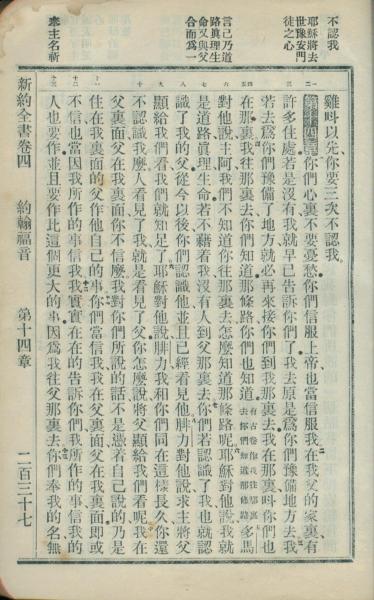 不認我
耶穌將去
世豫安門
徒之心
言己乃道
路真理生
命又與父
合而爲一
奉主名祈
雞呌以先你要三次不認我
第十四章你們心裏不要憂愁你們信服上帝也當信服我在我父的家裏有
許多住處若是沒有我就早已告訴你們了我去原是爲你們豫備地方去我
若去爲你們豫備了地方就必再來接你們到我那裏去我在那裏呌你們也
在那裏我往那裏去你們知道那條路你們也知道
有古卷作我往那裏
去你們知道那條路
多馬
對他說主阿我們不知道你往那裏去怎麼知道那條路呢耶穌對他說我就
是道路眞理生命若不藉着我沒有人到父那裏去你們若認識了我也就認
識了我的父從今以後你們認識他並且已經看見他腓力對他說求主將父
顯給我們看我們就知足了耶穌對他說腓力我和你們同在這樣長久你還
不認識我麼人看見了我就是看見了父你怎麼說將父顯給我們看呢我在
父裏面父在我裏面你不信麼我對你們所說的話不是憑着自己說的乃是
住在我裏面的父作他自己的事你們當信我我在父裏面父在我裏面卽或
不信也當因我所作的事信我我實實在在的告訴你們我所作的事信我的
人也要作並且要作比這個更大的事因爲我往父那裏去你們奉我的名無
新約全書卷四
約翰福音
第十四章
二百三十七